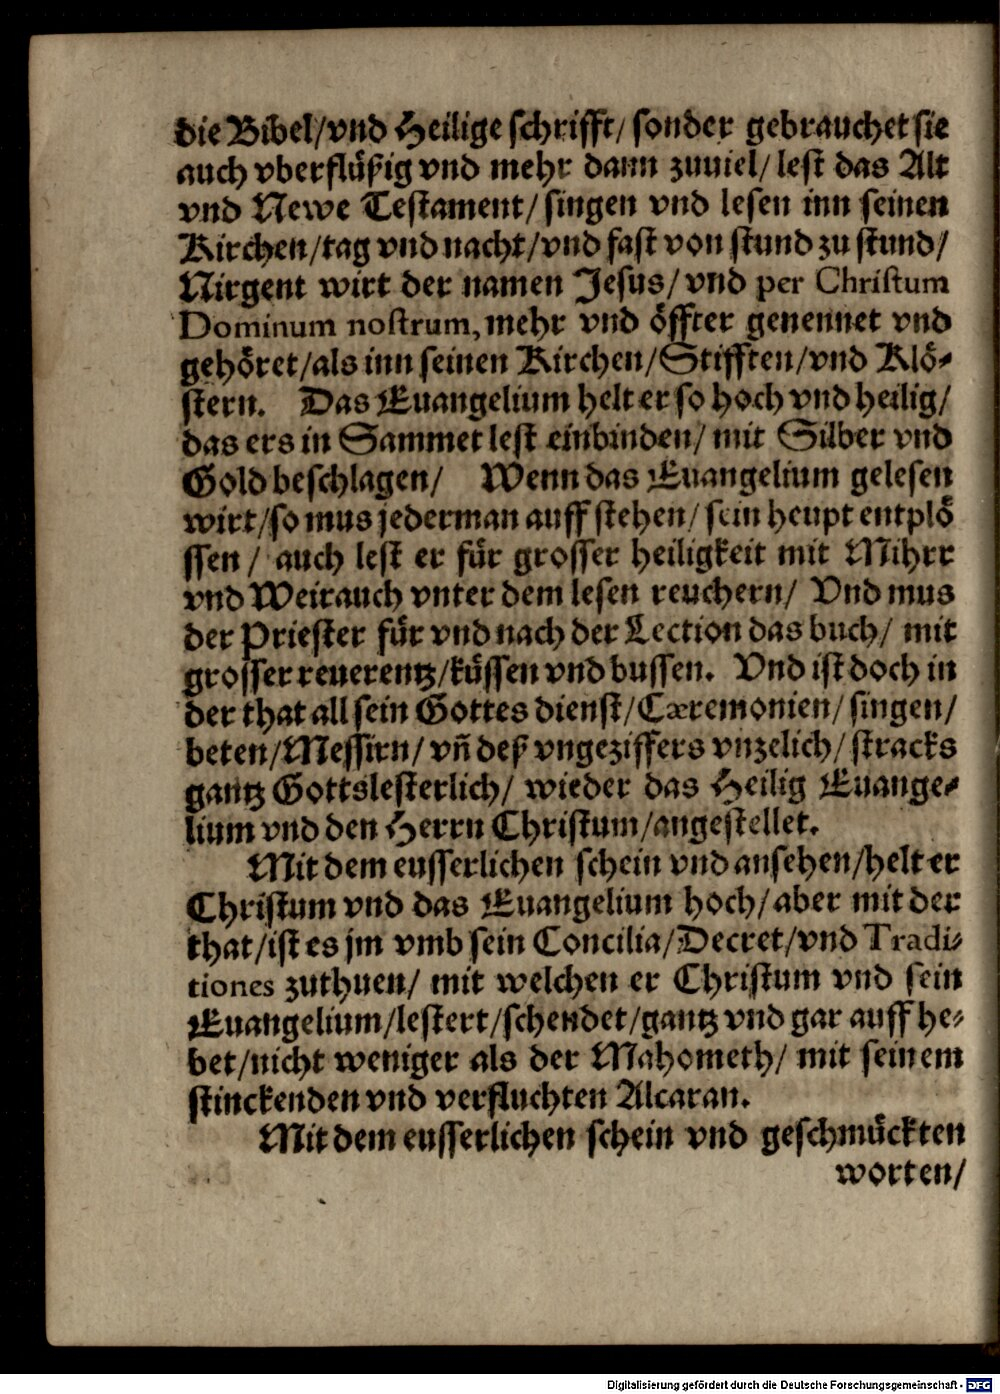 die Bibel/vnd Heilige schrifft/ sonder gebrauchet sie
auch vberflüßig vnd mehr dann zuuiel/ lest das Alt
vnd Newe Testament/ singen vnd lesen inn seinen
Kirchen/tag vnd nacht/vnd fast von stund zu stund/
Nirgent wirt der namen Jesus/ vnd per Christum
Dominum nostrum, mehr vnd öffter genennet vnd
gehöret/als inn seinen Kirchen/Stifften/vnd Klö-
stern. Das Euangelium helt er so hoch vnd heilig/
das ers in Sammet lest einbinden/ mit Silber vnd
Gold beschlagen/ Wenn das Euangelium gelesen
wirt/so mus jederman auff stehen/ sein heupt entplö
ssen / auch lest er für grosser heiligkeit mit Mihrr
vnd Weirauch vnter dem lesen reuchern/ Vnd mus
der Priester für vnd nach der Lection das buch/ mit
grosser reuerentz/küssen vnd bussen. Vnd ist doch in
der that all sein Gottes dienst/Cæremonien/ singen/
beten/Messirn/ vñ deß vngeziffers vnzelich/ stracks
gantz Gottslesterlich/ wieder das Heilig Euange-
lium vnd den Herrn Christum/angestellet.
Mit dem eusserlichen schein vnd ansehen/helt er
Christum vnd das Euangelium hoch/aber mit der
that/ist es jm vmb sein Concilia/Decret/vnd Tradi-
tiones zuthuen/ mit welchen er Christum vnd sein
Euangelium/lestert/schendet/gantz vnd gar auff he-
bet/nicht weniger als der Mahometh/ mit seinem
stinckenden vnd verfluchten Alcaran.
Mit dem eusserlichen schein vnd geschmückten
worten/
Digitalisierung gefördert durch die Deutsche Forschungsgemeinschaft - DFG